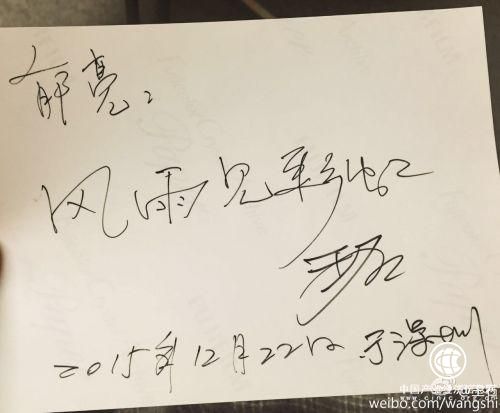 郁亮：
风雨见彩虹
王石
2015年12月22日 于深圳
weibo.com/wangshi